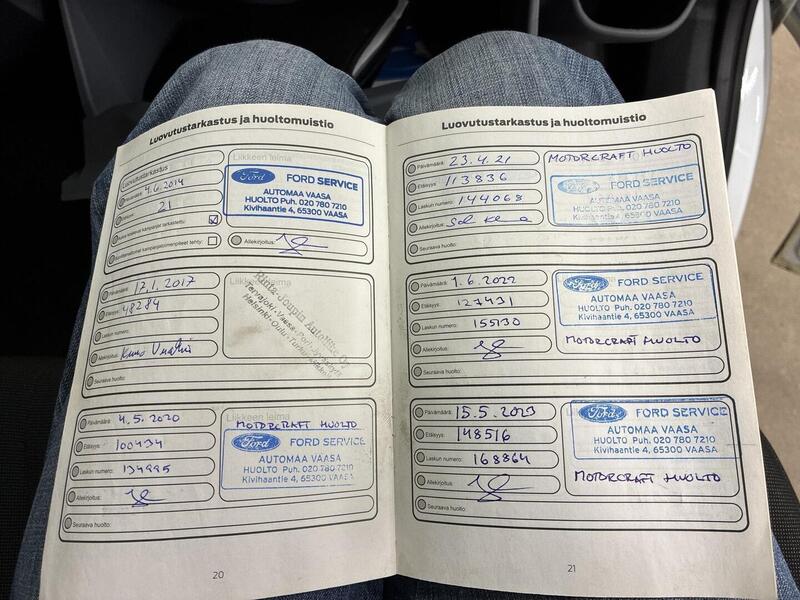 Luovutustarkastus ja huoltomuistio
Luovutustarkastus
Liikkeen leima
4.6.2014
21
Ford FORD SERVICE
AUTOMAA VAASA
HUOLTO Puh. 020 780 7210
Kivihaantie 4, 65300 VAASA
Allekirjoitus:
Päivämäärä: 17.1.2017
Etäisyys: 48284
Laskun numero:
Allekirjoitus:
Seuraava huolto:
Liikkeen leima
Rinta-Joupin Autoliike Oy
Päivämäärä: 4.5.2020
Etäisyys: 100434
Laskun numero: 134995
Allekirjoitus:
Seuraava huolto:
Liikkeen leima
MOTORCRAFT HUOLTO
Ford FORD SERVICE
AUTOMAA VAASA
HUOLTO Puh. 020 780 7210
Kivihaantie 4, 65300 VAASA
20
Luovutustarkastus ja huoltomuistio
Päivämäärä: 23.4.21
Etäisyys: 113836
Laskun numero: 144068
Allekirjoitus:
Seuraava huolto:
MOTORCRAFT HUOLTO
Ford FORD SERVICE
AUTOMAA VAASA
HUOLTO Puh. 020 780 7210
Kivihaantie 4, 65300 VAASA
Päivämäärä: 1.6.2022
Etäisyys: 127431
Laskun numero: 155130
Allekirjoitus:
Seuraava huolto:
Ford FORD SERVICE
AUTOMAA VAASA
HUOLTO Puh. 020 780 7210
Kivihaantie 4, 65300 VAASA
MOTORCRAFT HUOLTO
Päivämäärä: 15.5.2023
Etäisyys: 148516
Laskun numero: 168864
Allekirjoitus:
Seuraava huolto:
Ford FORD SERVICE
AUTOMAA VAASA
HUOLTO Puh. 020 780 7210
Kivihaantie 4, 65300 VAASA
MOTORCRAFT HUOLTO
21